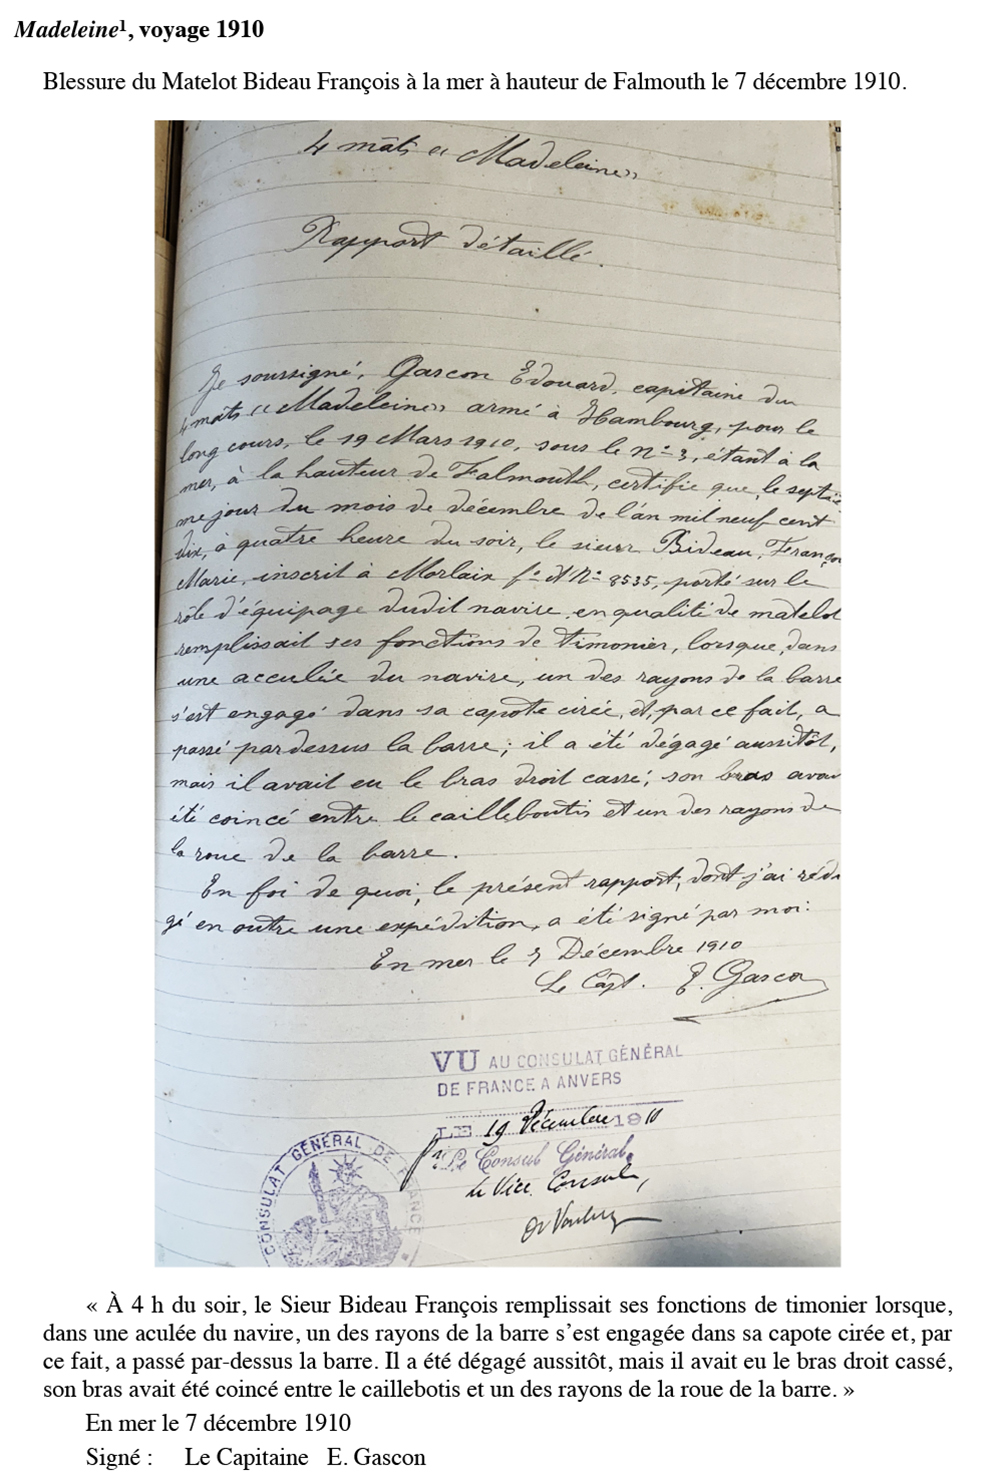 Madeleine¹, voyage 1910
Blessure du Matelot Bideau François à la mer à hauteur de Falmouth le 7 décembre 1910.
4 mâts « Madeleine »
Rapport détaillé.
Je soussigné, Gascon Edouard, capitaine du
4 mâts « Madeleine » armé à Hambourg, pour le
long cours, le 19 Mars 1910, sous le n° 3, étant à la
mer, à la hauteur de Falmouth, certifie que, le septiè
me jour du mois de décembre de l'an mil neuf cent
dix, à quatre heure du soir, le sieur Bideau, François
Marie, inscrit à Morlaix f° et N° 8535, porté sur le
rôle d'équipage dudit navire en qualité de matelot
remplissait ses fonctions de timonier, lorsque, dans
une acculée du navire, un des rayons de la barre
s'est engagé dans sa capote cirée, et, par ce fait, a
passé par dessus la barre ; il a été dégagé aussitôt,
mais il avait eu le bras droit cassé ; son bras avai
été coincé entre le cailleboutis et un des rayons de
la roue de la barre.
En foi de quoi, le présent rapport, dont j'ai rédi
gé en outre une expédition, a été signé par moi :
En mer le 7 Décembre 1910
Le Capt. E. Gascon
VU AU CONSULAT GÉNÉRAL
DE FRANCE A ANVERS
LE 19 Décembre 1910
Le Consul Général,
le Vice Consul,
CONSULAT GÉNÉRAL DE FRANCE
« À 4 h du soir, le Sieur Bideau François remplissait ses fonctions de timonier lorsque,
dans une aculée du navire, un des rayons de la barre s'est engagée dans sa capote cirée et, par
ce fait, a passé par-dessus la barre. Il a été dégagé aussitôt, mais il avait eu le bras droit cassé,
son bras avait été coincé entre le caillebotis et un des rayons de la roue de la barre. »
En mer le 7 décembre 1910
Signé : Le Capitaine E. Gascon